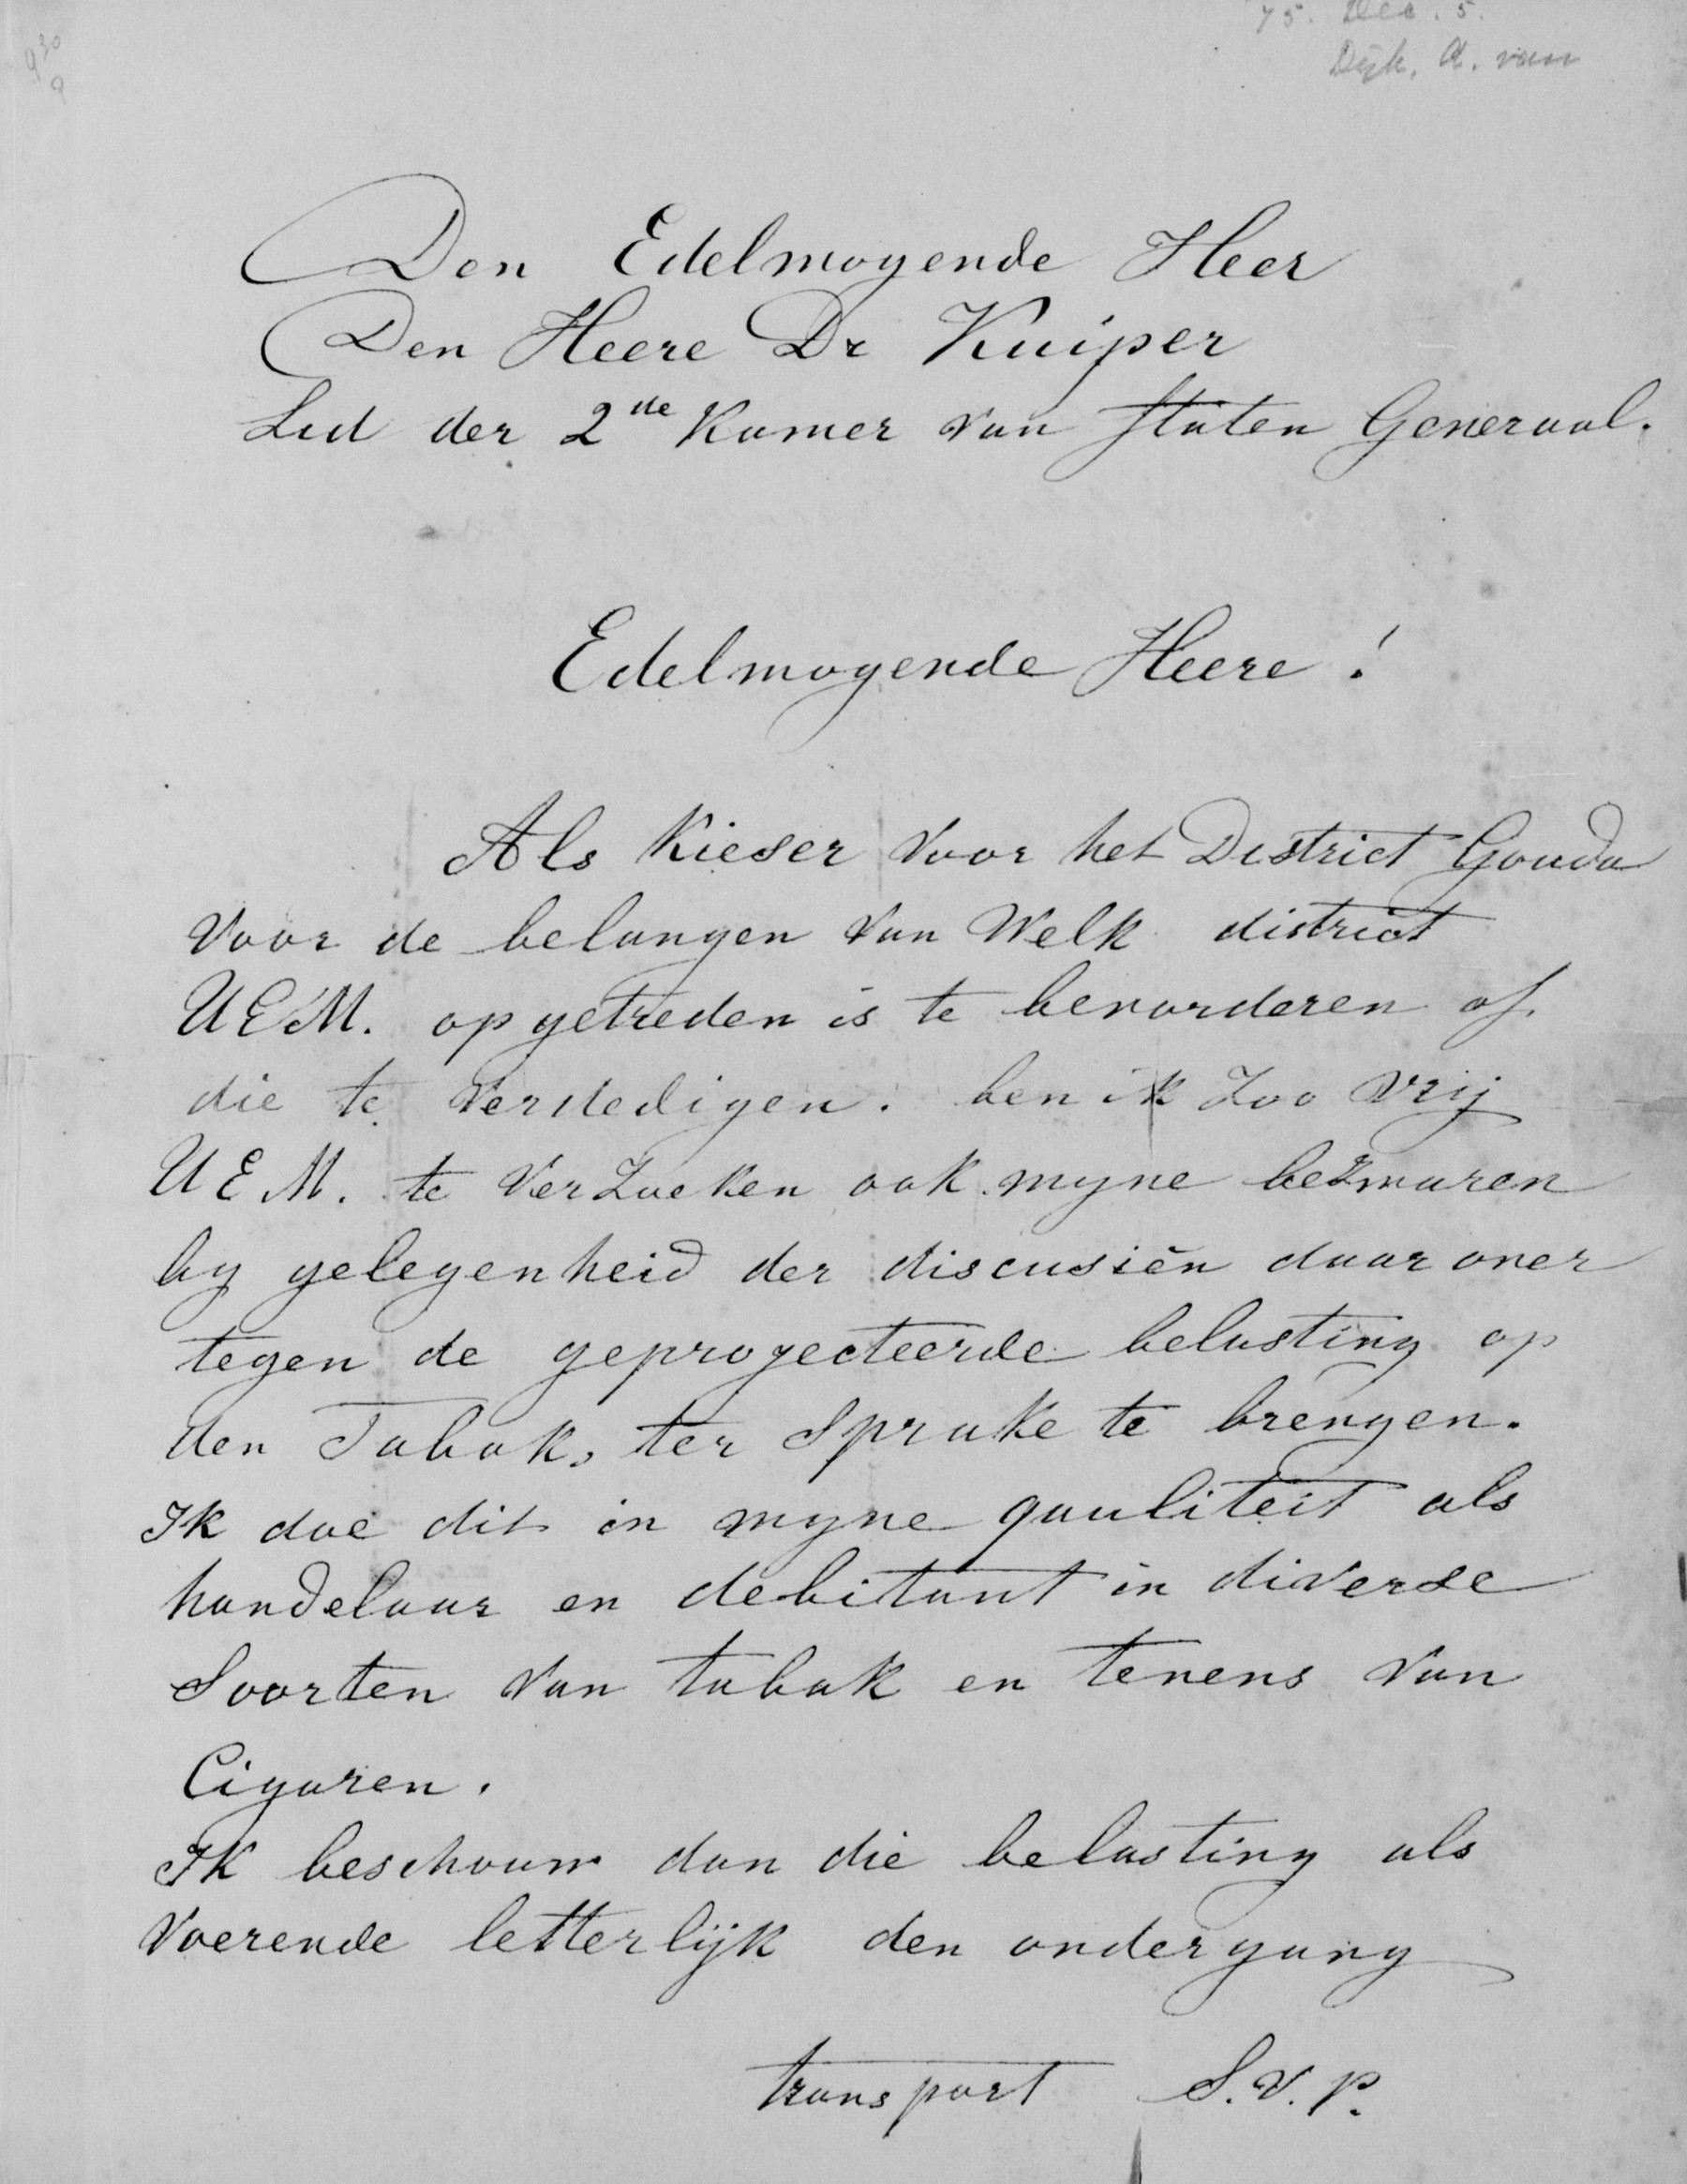 75. Dec. 5.
Dijk, A. van
930
9
Den Edelmogende Heer
Den Heere Dr Kuiper
Lid der 2de Kamer van Staten Generaal.
Edelmogende Heere !
Als Kieser voor het District Gouda
voor de belangen van welk district
U E M. opgetreden is te bevorderen of
die te verdedigen. ben ik zoo vrij
U E M. te verzoeken ook myne bezwaren
by gelegenheid der discusiën daar over
tegen de geprojecteerde belasting op
den Tabak, ter sprake te brengen.
Ik doe dit in myne qualiteit als
handelaar en debitant in diverse
Soorten van tabak en tevens van
Cigaren.
Ik beschouw dan die belasting als
voerende letterlijk den ondergang
transport S. V. P.